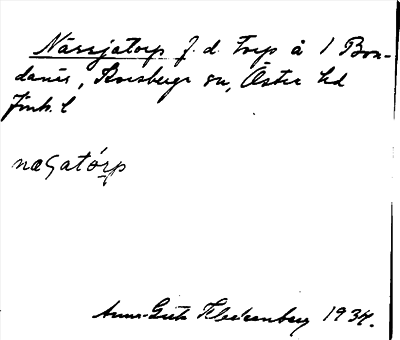 Närsjatorp f. d. torp å 1 Bon-
danäs, Torsbergs sn, Östra hd
Jönk. l
næʃatórp
Anna-Greta Fleckenberg 1934.